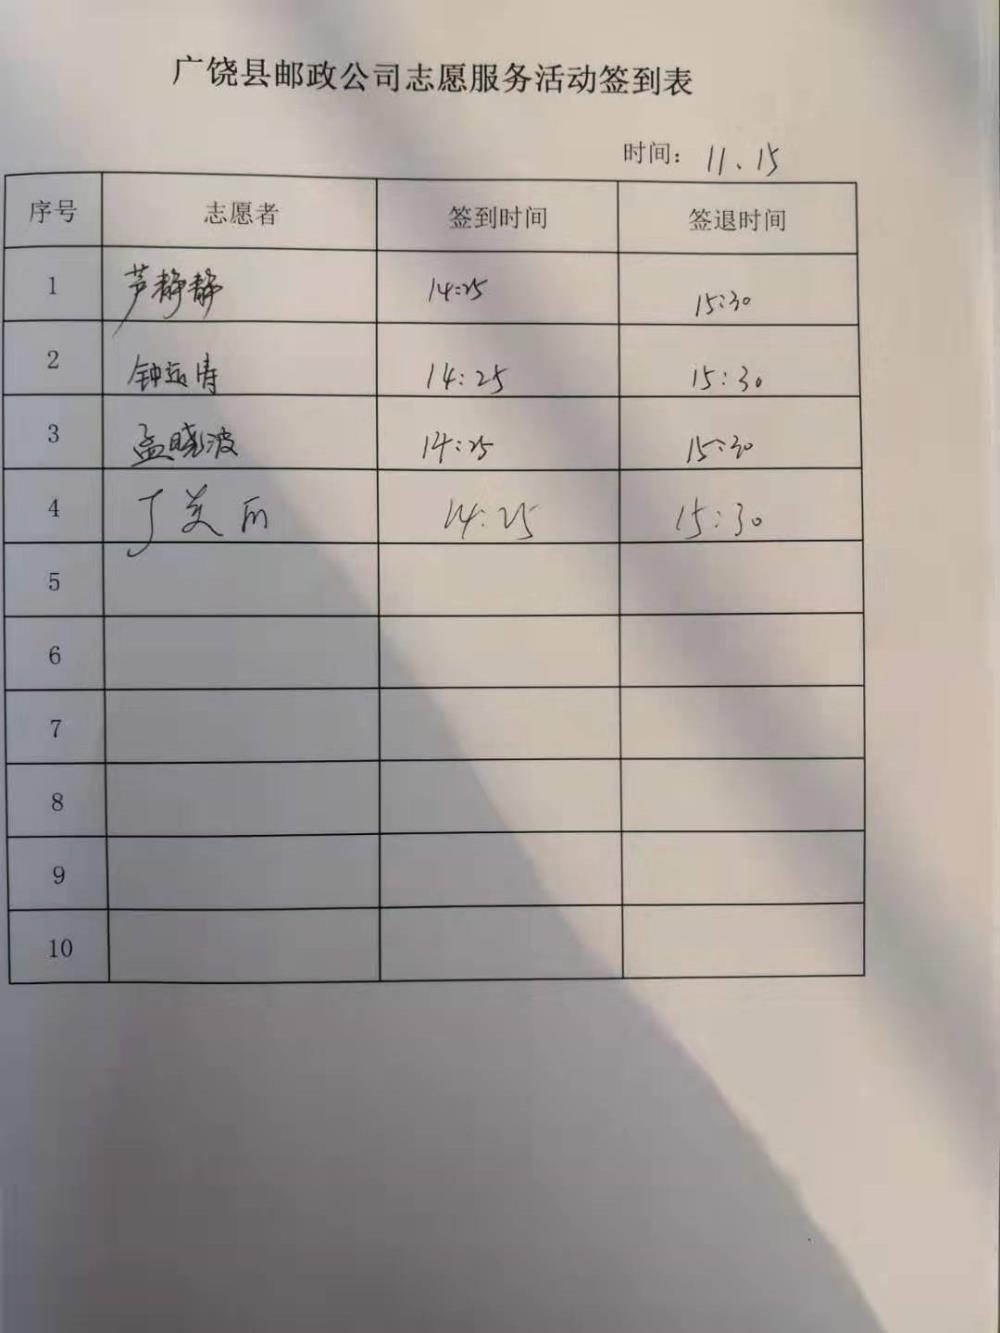 广饶县邮政公司志愿服务活动签到表
时间：11、15
序号 志愿者 签到时间 签退时间
1 芦静静 14:25 15:30
2 钟 涛 14:25 15:30
3 孟晓波 14:25 15:30
4 丁美丽 14:25 15:30
5
6
7
8
9
10